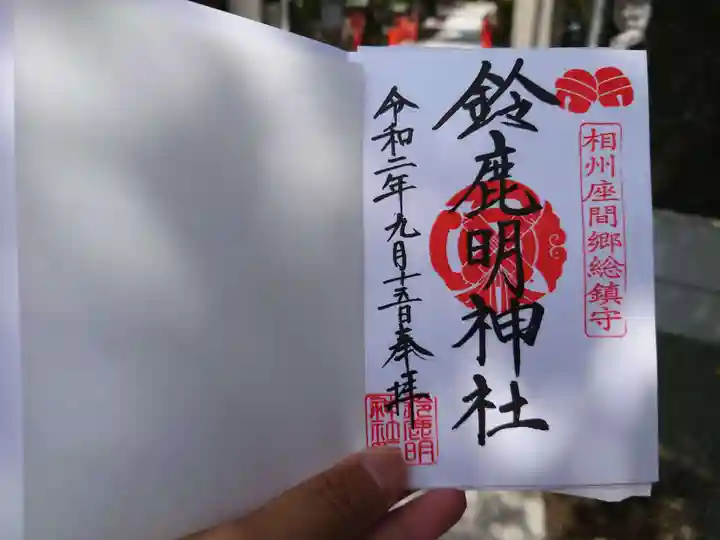 相州座間郷総鎮守
鈴鹿明神社
令和二年九月十五日奉拝
鈴鹿明